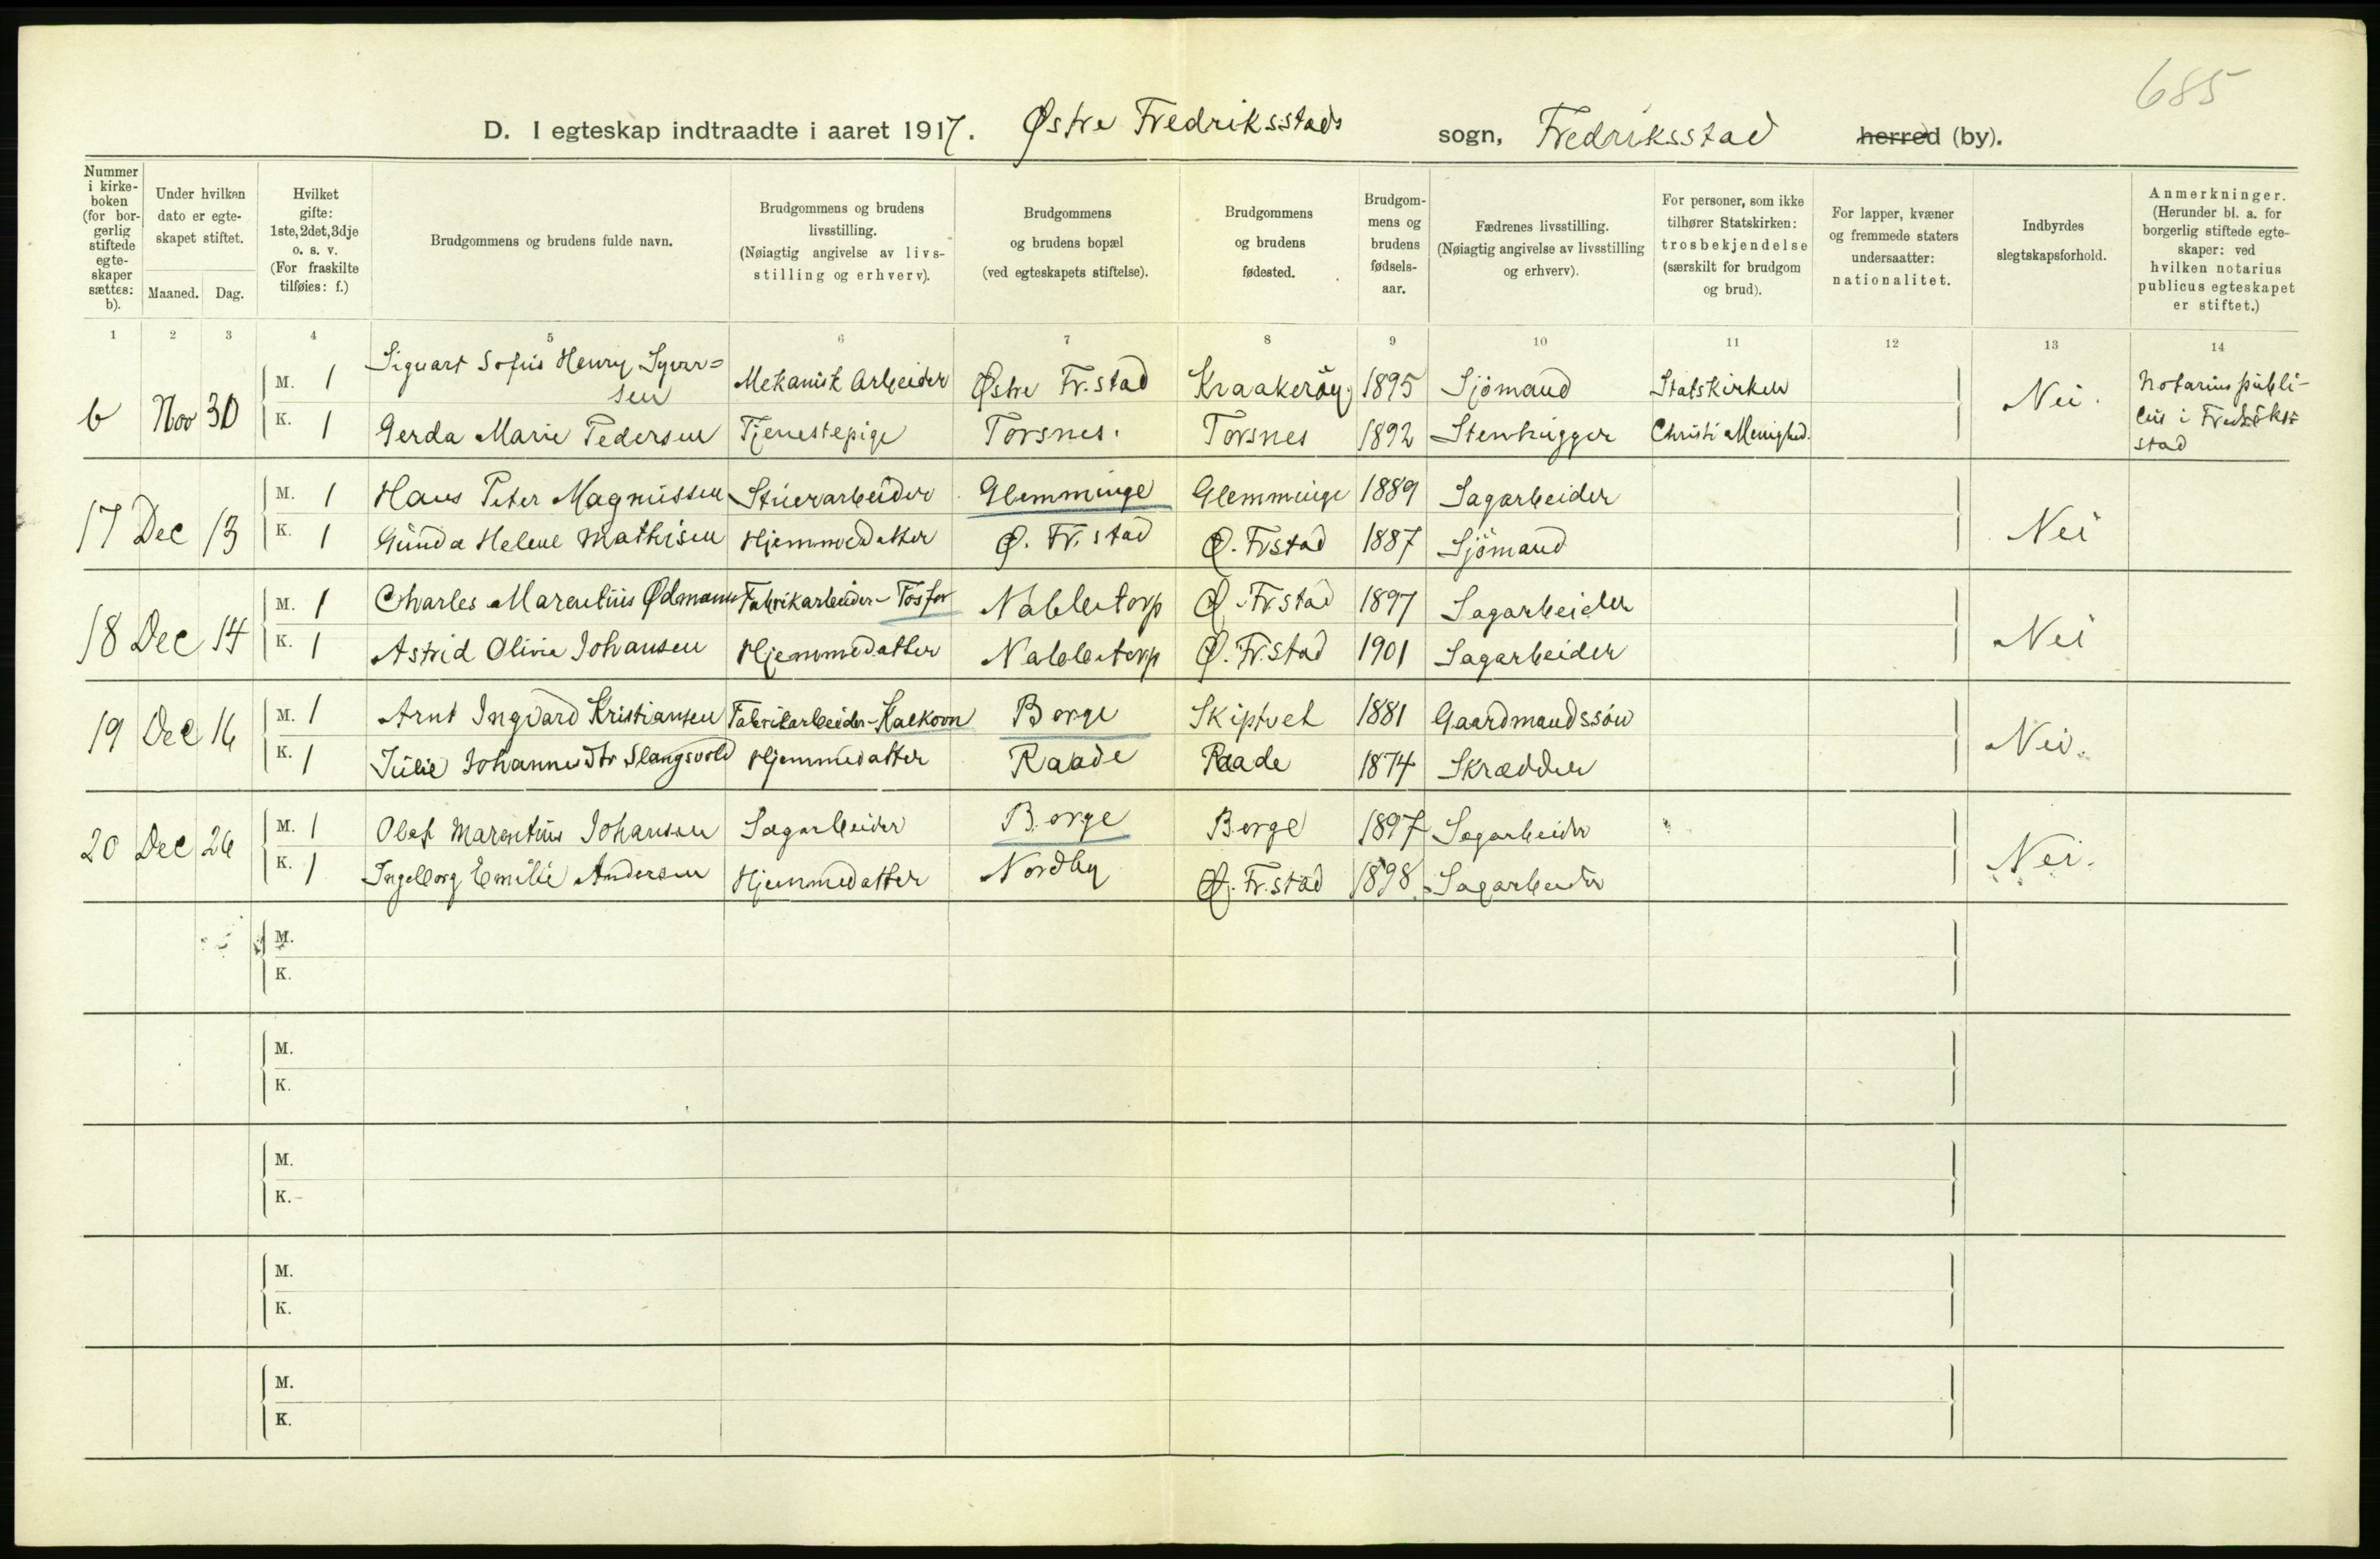 685
D. I egteskap indtraadte i aaret 1917. Østre Fredriksstads sogn, Fredriksstad herred (by).
Nummer i kirke- boken (for bor- gerlig stiftede egte- skaper sættes: b).
Under hvilken dato er egte- skapet stiftet.
Maaned. Dag.
Hvilket gifte: 1ste, 2det, 3dje o. s. v. (For fraskilte tilføies: f.)
Brudgommens og brudens fulde navn.
Brudgommens og brudens livsstilling. (Nøiagtig angivelse av livs- stilling og erhverv).
Brudgommens og brudens bopæl (ved egteskapets stiftelse).
Brudgommens og brudens fødested.
Brudgom- mens og brudens fødsels- aar.
Fædrenes livsstilling. (Nøiagtig angivelse av livsstilling og erhverv).
For personer, som ikke tilhører Statskirken: trosbekjendelse (særskilt for brudgom og brud).
For lapper, kvæner og fremmede staters undersaatter: nationalitet.
Indbyrdes slegtskapsforhold.
Anmerkninger. (Herunder bl. a. for borgerlig stiftede egte- skaper: ved hvilken notarius publicus egteskapet er stiftet.)
1 2 3 4 5 6 7 8 9 10 11 12 13 14
b Nov 30 M. 1 Sigvart Sofus Henry Syverr= sen Mekanisk Arbeider Østre Fr.stad Kraakerøy 1895 Sjömand Statskirken Nei. Notarius publi- cus i Fredriks- stad
K. 1 Gerda Marie Pedersen Tjenestepige Torsnes. Torsnes 1892 Stenhugger Christi Menighed.
17 Dec 13 M. 1 Hans Peter Magnussen Stuerarbeider Glemminge Glemminge 1889 Sagarbeider Nei
K. 1 Gunda Helene Mathisen Hjemmedatter Ø. Fr.stad Ø. Frstad 1887 Sjömand
18 Dec 14 M. 1 Charles Marentius Ødmann Fabrikarbeider - Fosfor Nabbetorp Ø. Fr.stad 1897 Sagarbeider Nei
K. 1 Astrid Olivia Johansen Hjemmedatter Nabbetorp Ø. Fr.stad 1901 Sagarbeider
19 Dec 16 M. 1 Arnt Ingvard Kristiansen Fabrikarbeider - Kalkovn Borge Skiptvet 1881 Gaardmandssön Nei.
K. 1 Julie Johannesdtr Slangsvold Hjemmedatter Raade Raade 1874 Skrædder
20 Dec 26 M. 1 Olaf Marentius Johansen Sagarbeider Borge Borge 1897 Sagarbeider Nei.
K. 1 Ingeborg Emilie Andersen Hjemmedatter Nordby Ø. Fr.stad 1898 Sagarbeider
M.
K.
M.
K.
M.
K.
M.
K.
M.
K.